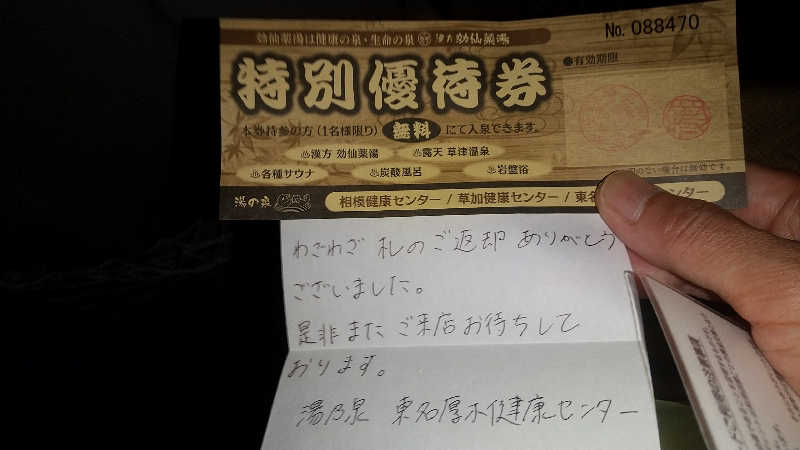 効仙薬湯は健康の泉・生命の泉 漢方効仙薬湯
No. 088470
特別優待券
●有効期限
本券持参の方(1名様限り)無料にて入泉できます。
♨漢方 効仙薬湯 ♨露天 草津温泉
♨各種サウナ ♨炭酸風呂 ♨岩盤浴
のない場合は無効です。
湯の泉 相模健康センター / 草加健康センター / 東名 センター
わざわざ 札のご返却 ありがとう
ございました。
是非また ご来店お待ちして
おります。
湯乃泉 東名厚木健康センター